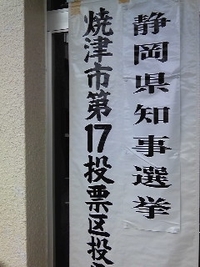 静岡県知事選挙
焼津市第17投票区投